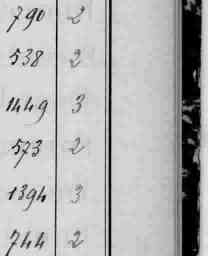 790 2
538 2
1449 3
573 2
1394 3
744 2